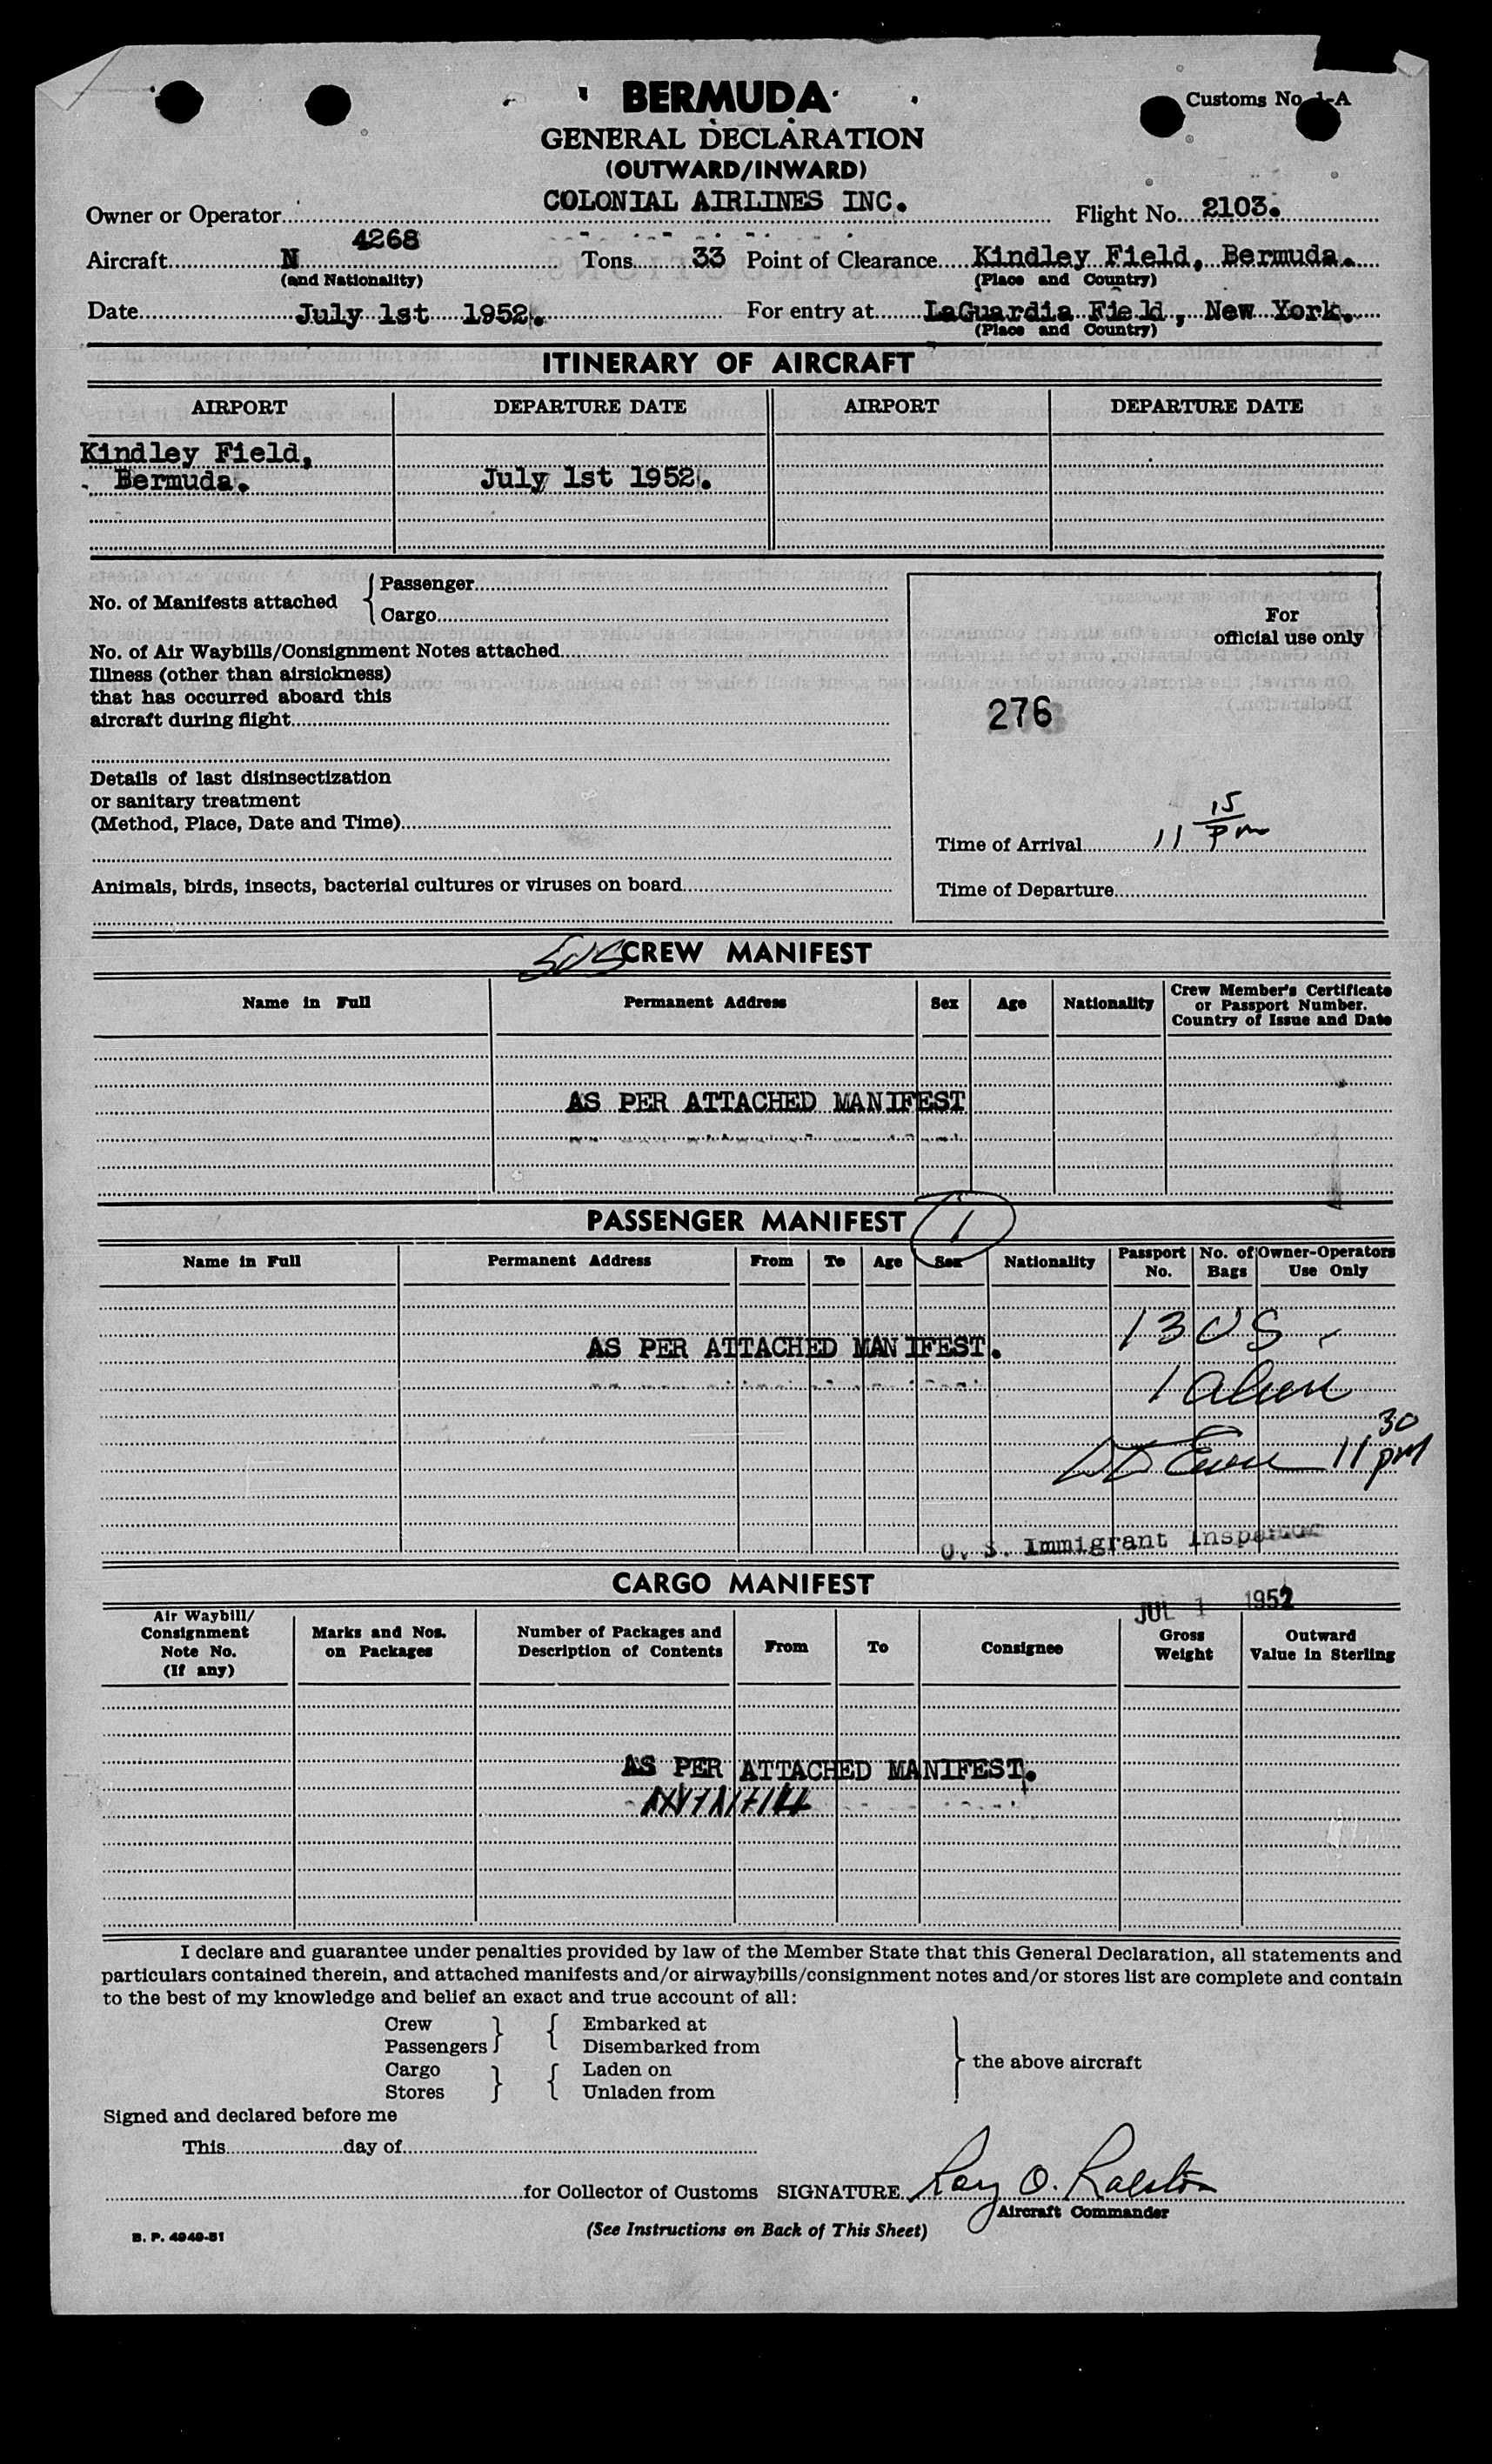 BERMUDA
Customs No. 1-A
GENERAL DECLARATION
(OUTWARD/INWARD)
Owner or Operator COLONIAL AIRLINES INC. Flight No. 2103.
Aircraft N 4268 Tons 33 Point of Clearance Kindley Field, Bermuda.
(and Nationality) (Place and Country)
Date July 1st 1952. For entry at LaGuardia Field, New York.
(Place and Country)
ITINERARY OF AIRCRAFT
AIRPORT DEPARTURE DATE AIRPORT DEPARTURE DATE
Kindley Field,
Bermuda. July 1st 1952.
No. of Manifests attached { Passenger
Cargo
For
official use only
No. of Air Waybills/Consignment Notes attached
Illness (other than airsickness)
that has occurred aboard this
aircraft during flight
276
Details of last disinsectization
or sanitary treatment
(Method, Place, Date and Time)
Time of Arrival 11 15 pm
Animals, birds, insects, bacterial cultures or viruses on board
Time of Departure
5US CREW MANIFEST
Name in Full Permanent Address Sex Age Nationality Crew Member's Certificate
or Passport Number.
Country of Issue and Date
AS PER ATTACHED MANIFEST
PASSENGER MANIFEST 1
Name in Full Permanent Address From To Age Sex Nationality Passport No. No. of Bags Owner-Operators Use Only
13 US
AS PER ATTACHED MANIFEST.
1 alien
11 30 pm
U. S. Immigrant Inspector
CARGO MANIFEST
JUL 1 1952
Air Waybill/
Consignment
Note No.
(If any)
Marks and Nos.
on Packages
Number of Packages and
Description of Contents
From To Consignee
Gross
Weight
Outward
Value in Sterling
AS PER ATTACHED MANIFEST.
I declare and guarantee under penalties provided by law of the Member State that this General Declaration, all statements and
particulars contained therein, and attached manifests and/or airwaybills/consignment notes and/or stores list are complete and contain
to the best of my knowledge and belief an exact and true account of all:
Crew } { Embarked at
Passengers } { Disembarked from
} the above aircraft
Cargo } { Laden on
Stores } { Unladen from
Signed and declared before me
This day of
for Collector of Customs SIGNATURE Ray O. Ralston
Aircraft Commander
B. P. 4949-51
(See Instructions on Back of This Sheet)